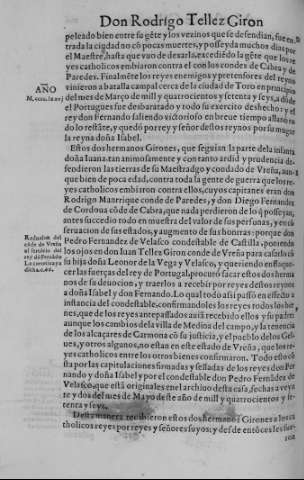 Don Rodrigo Tellez Giron
peleado bien entre su gēte y los vezinos que se defendian, fue en
trada la ciudad no cō pocas muertes, y posseyda muchos dias por
el Maestre, hasta que vuo de dexarla, excediēdo la gēte que los re
yes catholicos embiaron contra el con los condes de Cabra y de
Paredes. Finalmēte los reyes enemigos y pretensores del reyno
vinieron a batalla campal cerca de la ciudad de Toro en principio
AÑO
del mes de Março de mill y quatrocientos y setenta y seys, a dōde
M.cccc.lxxvj
el Portugues fue desbaratado y todo su exercito deshecho y el
rey don Fernando saliendo victorioso en breue tiempo allano to
do lo restāte, y quedó por rey y señor destos reynos por su muger
la reyna doña Isabel.
Estos dos hermanos Girones, que seguian la parte de la infanta
doña Iuana: tan animosamente y con tanto ardid y prudencia de-
fendieron las tierras de Maestradgo y condado de Vreña, aun-
que bien de poca edad, contra toda la gente de guerra que los re-
yes catholicos embiaron contra ellos, cuyos capitanes eran don
Rodrigo Manrrique conde de Paredes, y don Diego Fernandez
de Cordoua cōde de Cabra, que nada perdieron de lo q̄ posseyan,
antes succedio todo en muestra del valor de sus personas, y en cō
seruacion de sus estados, y augmento de sus honrras: porque don
Reduction del
cōde de Vreña
al seruicio del
rey don Fernādo
Pedro Fernandez de Velasco condestable de Castilla, poniendo
los ojos en don Iuan Tellez Giron conde de Vreña para casarlo cō
su hija doña Leonor de la Vega y Velasco, y queriendo enflaque-
cer las fuerças del rey de Portugal, procuró sacar estos dos herma
nos de su deuocion, y traerlos a recebir por reyes destos reynos
a doña Isabel y don Fernando. Lo qual todo assi passó en effecto a
instancia del condestable, confirmandoles los reyes todos los bie
nes, que de los reyes antepassados auiā recebido ellos y su padre:
aunque los cambios de la villa de Medina del campo, y la tenencia
de los alcaçares de Carmona cō su justicia, y el pueblo de los Gel-
ues, y otros algunos, no estan en este estado de Vreña, que los re-
yes catholicos entre los otros bienes confirmaron. Todo esto cō
sta por las capitulaciones firmadas y selladas de los reyes don Fer
nando y doña Isabel y por el condestable don Pedro Fernādez de
Velasco, que está originales enel archiuo desta casa, fechas a veyn
te y dos del mes de Mayo deste año de mill y quatrocientos y se-
tenta y seys.
Desta manera recibieron estos dos hermanos Girones a los ca
tholicos reyes por reyes y señores suyos; y desde entōces les fue-